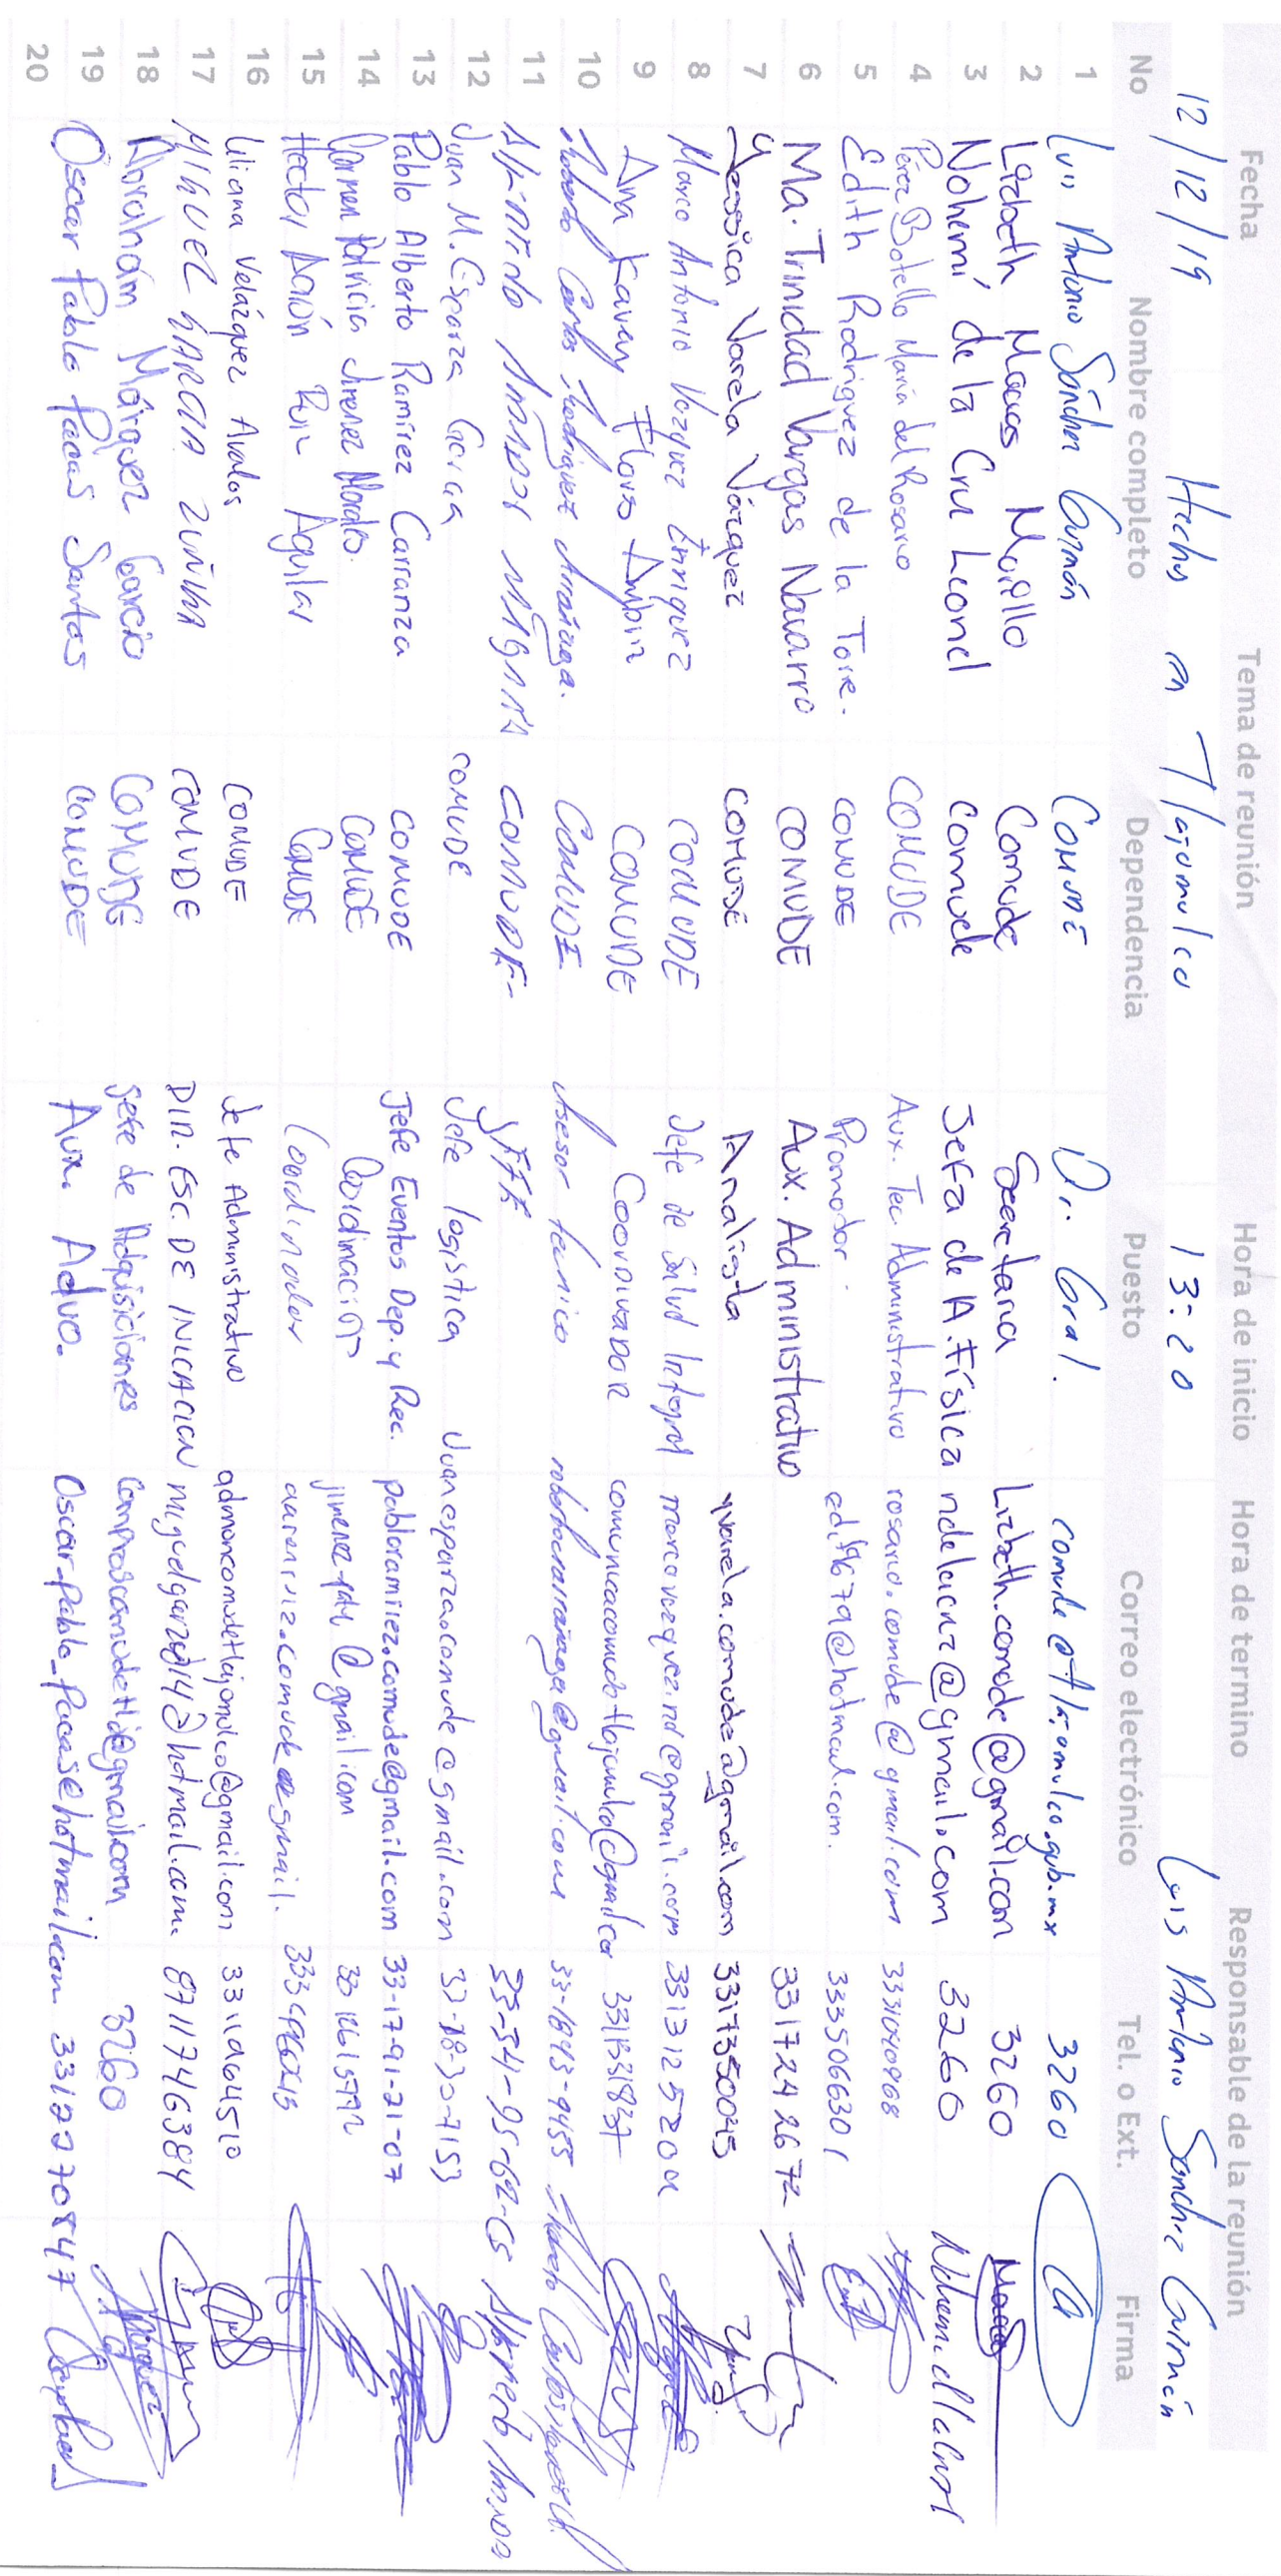 Fecha Tema de reunión Hora de inicio Hora de termino Responsable de la reunión
12/12/19 Hechos en Tlajomulco 13:20 Luis Antonio Sánchez Guzmán
No Nombre completo Dependencia Puesto Correo electrónico Tel. o Ext. Firma
1 Luis Antonio Sánchez Guzmán COMUDE Dir. Gral. comude@tlajomulco.gob.mx 3260
2 Lizbeth Macias Murillo Comude Secretaria Lizbeth.comude@gmail.com 3260 Macias
3 Nohemí de la Cruz Leonel comude Jefa de A. Física ndelacruz@gmail.com 3260
4 Pérez Botello María del Rosario COMUDE Aux. Tec. Administrativo rosario.comude@gmail.com 3331040968
5 Edith Rodriguez de la Torre. COMUDE Promotor. edith679@hotmail.com. 3335066301
6 Ma. Trinidad Vargas Navarro COMUDE Aux. Administrativo 3317242672
7 Yessica Varela Vázquez COMUDE Analista yvarela.comude@gmail.com 3317350045
8 Marco Antonio Vazquez Enriquez COMUDE Jefe de Salud Integral marcovazquezind@gmail.com 3313125204
9 Ana Karen Flores COMUDE COORDINADOR 3313318837
10 Roberto Carlos Rodriguez Arrañaga. COMUDE Asesor tecnico robertocarranaga@gmail.com 33-1843-9455
11 Armando Amador Magaña COMUDE- JEFE
12 Juan M. Esparza Garcia COMUDE Jefe logistica Juanesparza.comude@gmail.com
13 Pablo Alberto Ramírez Carranza COMUDE Jefe Eventos Dep. y Rec. pabloramirez.comude@gmail.com 33-17-91-21-07
14 Carmen Patricia Jimenez Morales. COMUDE Coordinación
15 Hector Aarón Ruiz Aguilar COMUDE Coordinador aaronruiz.comude@gmail.
16 Liliana Velázquez Avalos COMUDE Jefe Administrativo admoncomudetlajomulco@gmail.com 3311064510
17 MIGUEL GARCIA ZUÑIGA COMUDE DIR. ESC. DE INICIACION miguelgarza14@hotmail.com. 8711746384
18 Abrahám Márquez García COMUDE Jefe de Adquisiciones comprascomudetlj@gmail.com 3260 Márquez
19 Oscar Pablo Pacas Santos COMUDE Aux. Advo. Oscar_Pablo_Pacas@hotmail.com 3317770847
20